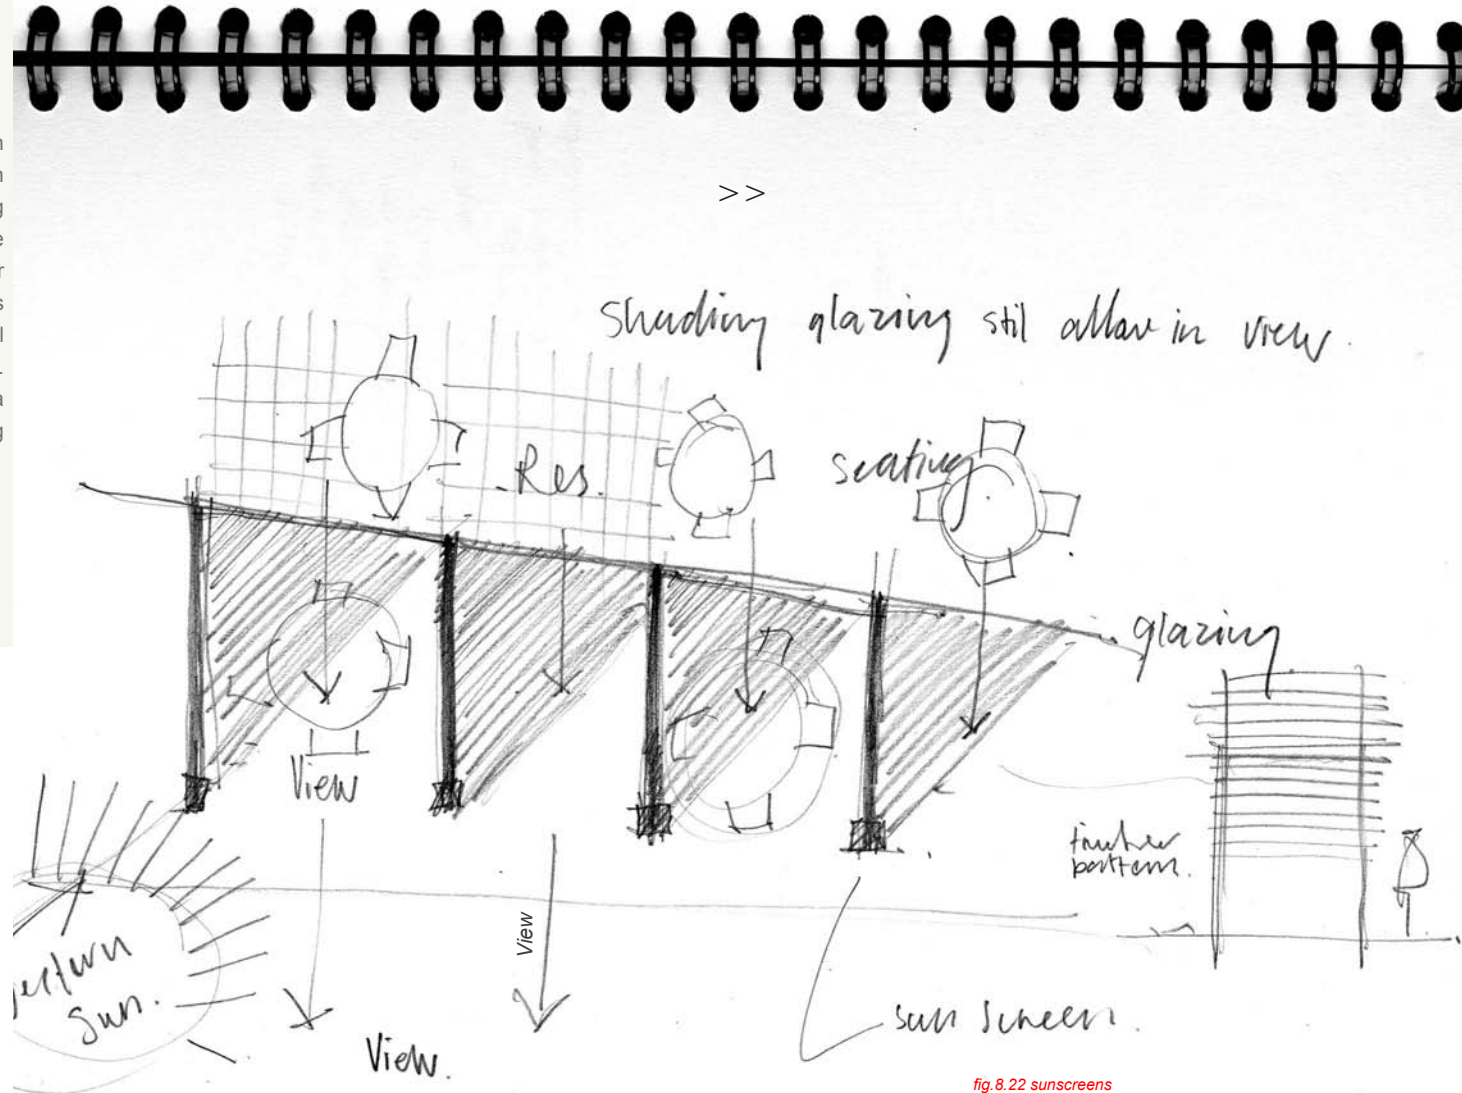 >>
Shading glazing stil allow in view.
Res.
seating
glazing
View
timber
battens.
View
Sun.
sun screen.
View.
fig.8.22 sunscreens